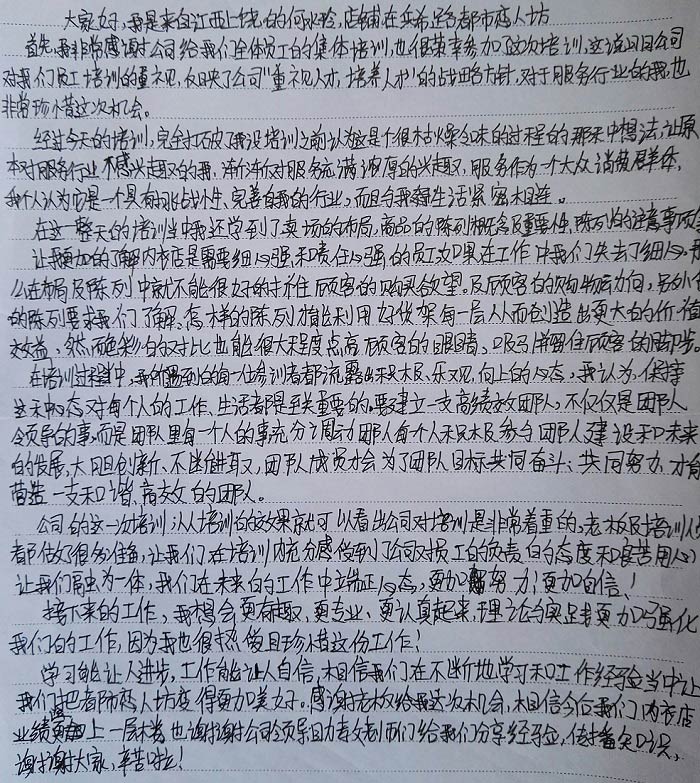 大家好，我是来自江西上饶的何水玲，店铺在 都市恋人坊
首先，我非常感谢公司给我们全体员工的集体培训，也很荣幸参加了这次培训，这说明公司
对我们员工培训的重视，反映了公司"重视人才，培养人才"的战略方针，对于服务行业的我，也
非常珍惜这次机会。
经过今天的培训，完全打破了我没培训之前认为这是个很枯燥乏味的过程的那种想法，让原
本对服务行业不感兴趣的我，渐渐对服务充满浓厚的兴趣，服务作为一个大众消费群体，
我个人认为它是一个具有挑战性、完善自我的行业，而且与我们生活紧密相连。
在这一整天的培训当中我还学到了卖场的布局，商品的陈列概念及重要性，陈列的注意事项
让我更加的了解内衣店是需要细心强和责任心强的员工如果在工作中我们失去了细心，那
么在布局及陈列中就不能很好的抓住顾客的购买欲望。及顾客的购物动向，另外
的陈列要求我们了解怎样的陈列才能利用好货架每一层从而创造出更大的价值
效益，然而色彩的对比也能很大程度点亮顾客的眼睛、吸引并留住顾客的脚步。
在培训过程中，我们遇到的每一位参训者都流露出积极、乐观、向上的心态，我认为，保持
这种心态对每个人的工作、生活都是至关重要的。要建立一支高绩效团队，不仅仅是团队
领导的事，而是团队里每一个人的事充分调动团队每个人积极参与团队建设和未来
的发展，大胆创新、不断进取，团队成员才会为了团队目标共同奋斗；共同努力，才能
营造一支和谐、高效的团队。
公司的这一次培训，从培训的效果就可以看出公司对培训是非常着重的，老板及培训人
都做了很多准备，让我们在培训内充分感受到了公司对员工的负责的态度和良苦用心
让我们融为一体，我们在未来的工作中端正心态，更加努力，更加自信！
接下来的工作，我想会更有趣、更专业、更认真起来，理论与实践更加与强化
我们的工作，因为我也很 且珍惜这份工作！
学习能让人进步，工作能让人自信，相信我们在不断地学习和工作经验当中让
我们把都市恋人坊变得更加美好。感谢老板给我这次机会，相信今后我们内衣店
业绩更上一层楼也谢谢公司领导 老师们给我们分享经验，传播知识。
谢谢大家，辛苦啦！